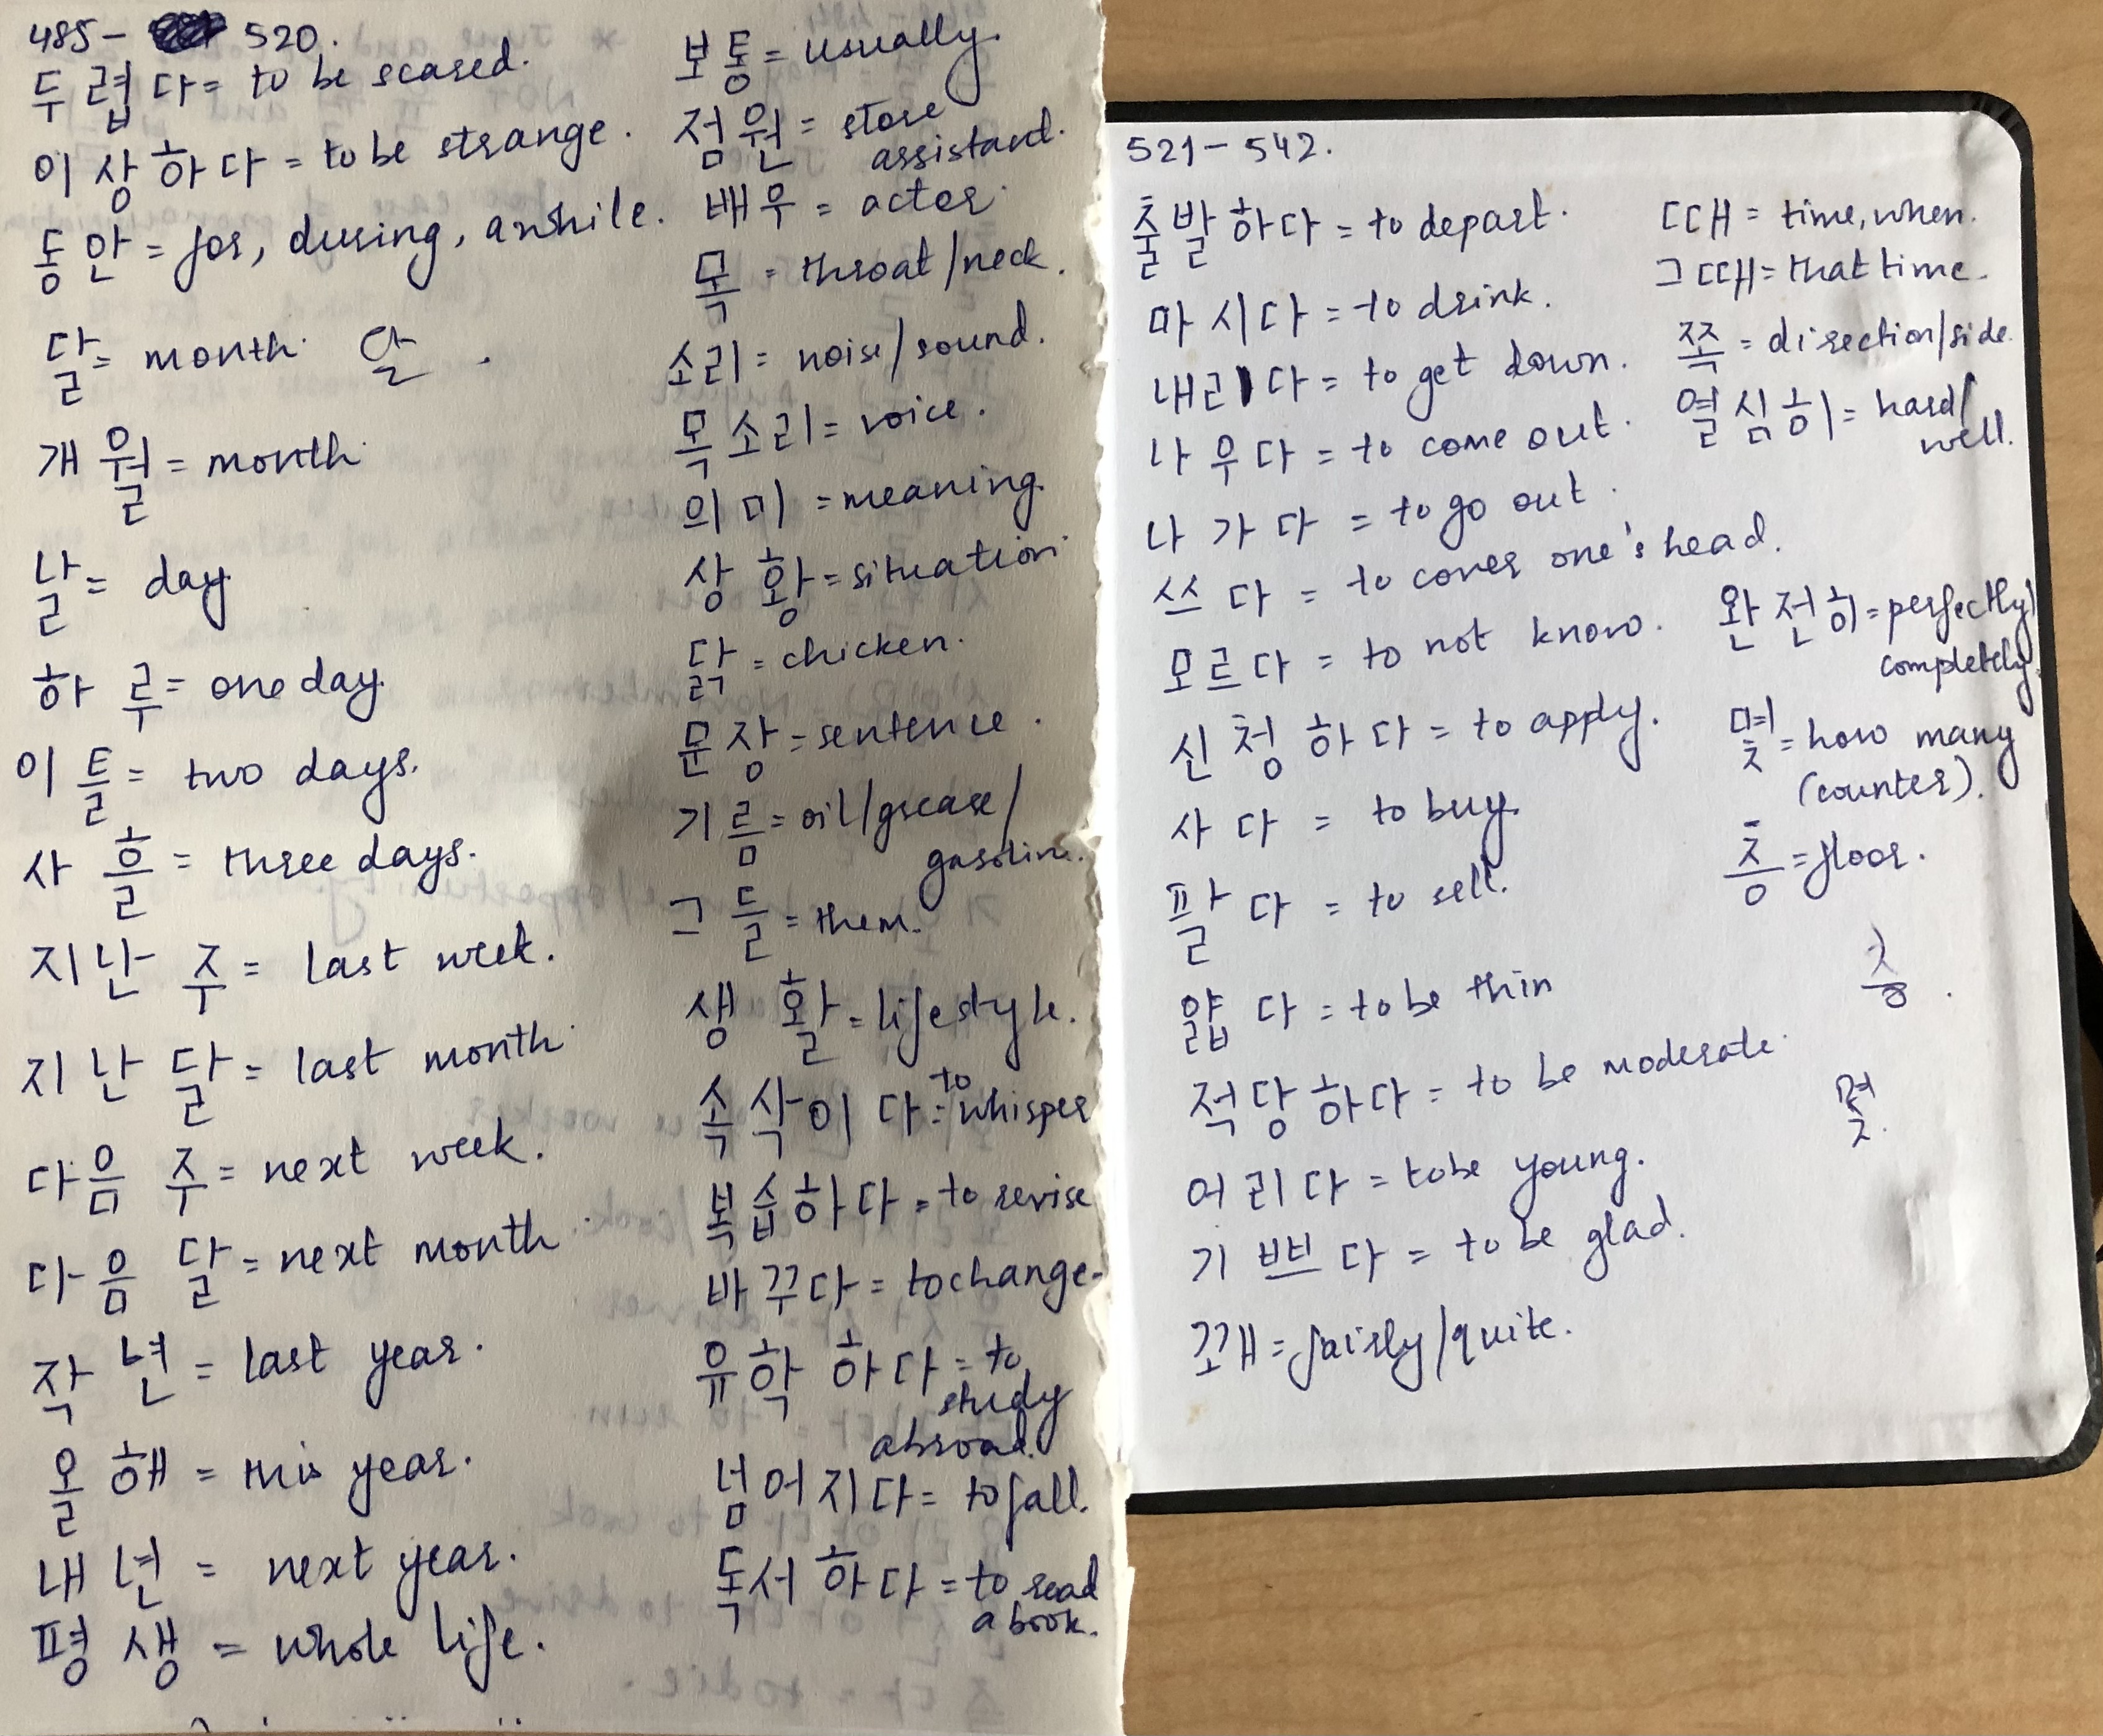 485- 520.
두렵다= to be scared.
이상하다 = to be strange.
동안 = for, during, awhile.
달= month 달
개월 = month
날= day
하루= one day
이틀= two days.
사흘 = three days.
지난 주= last week.
지난 달= last month
다음 주= next week.
다음 달= next month
작년 = last year.
올해 = this year.
내년 = next year.
평생 = whole life.
보통= usually.
점원 = store
assistant.
배우 = actor
목 = throat/neck.
소리= noise/sound.
목소리= voice.
의미 = meaning
상황=situation
닭=chicken.
문장=sentence.
기름=oil/grease/
gasoline.
그들=them.
생활=lifestyle.
속삭이다= to
whisper
복습하다= to revise
바꾸다= to change
유학하다= to
study
abroad.
넘어지다= to fall.
독서하다= to read
a book.
521-542.
출발하다= to depart.
마시다= to drink.
내리다= to get down.
나우다= to come out.
나가다 = to go out
쓰다 = to cover one's head.
모르다 = to not know.
신청하다 = to apply.
사다 = to buy
팔다 = to sell.
얇다 = to be thin
적당하다= to be moderate
어리다= to be young.
기쁘다= to be glad.
꼬개=fairly/quite.
때= time, when.
그때= that time.
쪽 = direction/side.
열심히= hard/
well.
완전히=perfectly/
completely.
몇 = how many
(counter).
층=floor.
층.
몇.